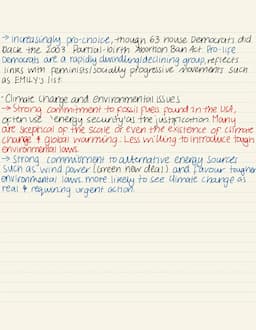 → increasingly pro-choice, though 63 house Democrats did
back the 2003 Partial-birth Abortion Ban Act. Pro-life
Democrats are a rapidly dwindling/declining group, reflects
links with feminists/socially progressive movements such
as EMILY's list.
-Climate Change and environmental issues
→ Strong commitment to fossil fuels found in the USA,
often use 'energy security' as the justification. Many
are skeptical of the scale or even the existence of climate
change & global warming. Less willing to introduce tough
environmental laws.
→ Strong commitment to alternative energy sources
such as wind power (Green new deal) and favour tougher
environmental laws. more likely to see climate change as
real & requiring urgent action.